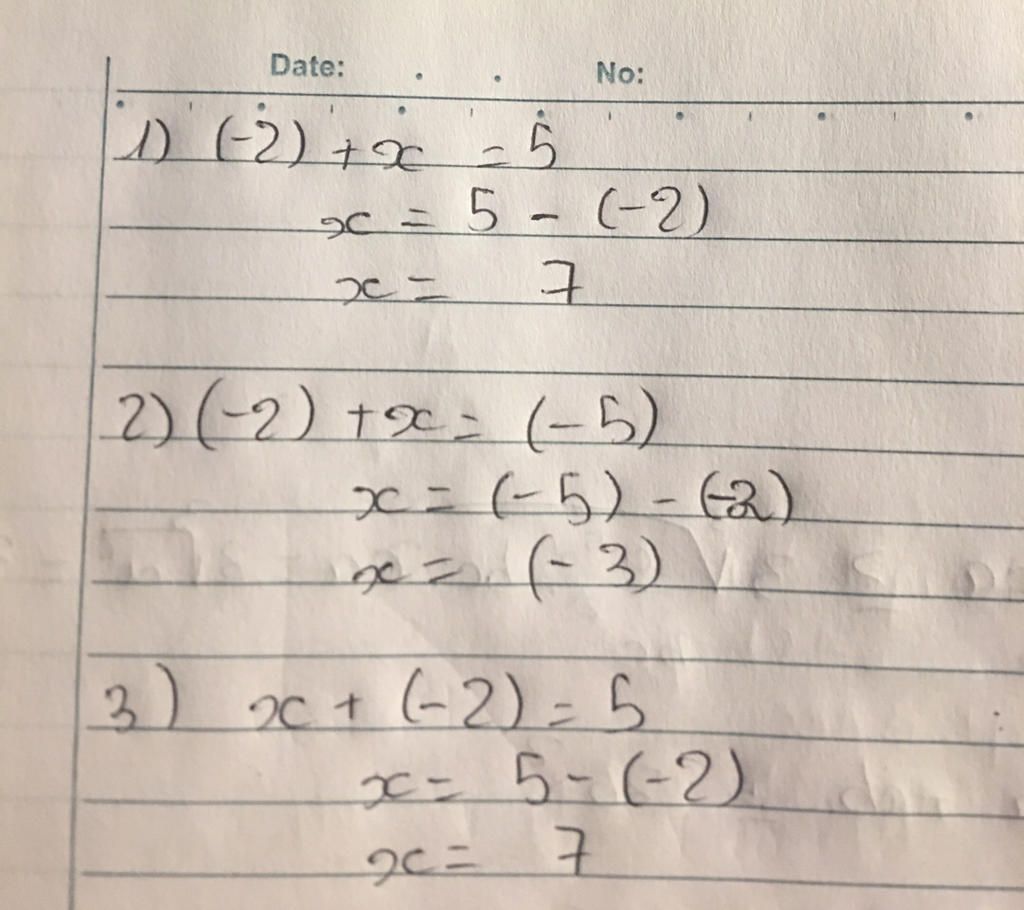 Date: . . No:
1) (-2) + x = 5
x = 5 - (-2)
x = 7
2) (-2) + x = (-5)
x = (-5) - (-2)
x = (-3)
3) x + (-2) = 5
x = 5 - (-2)
x = 7